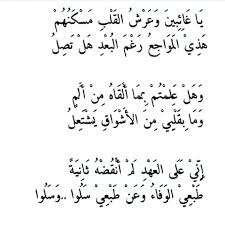 يَا غَائِبِينَ وَعَرْشُ القَلْبِ مَسْكَنُهُمْ
هَذِيْ المَوَاجِعُ رَغْمَ البُعْدِ هَلْ تَصِلُ
وَهَلْ عَلِمْتُمْ بِمَا أَلْقَاهُ مِنْ أَلَمٍ
وَمَا بِقَلْبِيْ مِنَ الأَشْوَاقِ يَشْتَعِلُ
إِنِّيْ عَلَى العَهْدِ لَمْ أَنْقُضْهُ ثَانِيَةً
طَبْعِيْ الوَفَاءُ وَعَنْ طَبْعِيْ سَلُوا ..وَسَلُوا